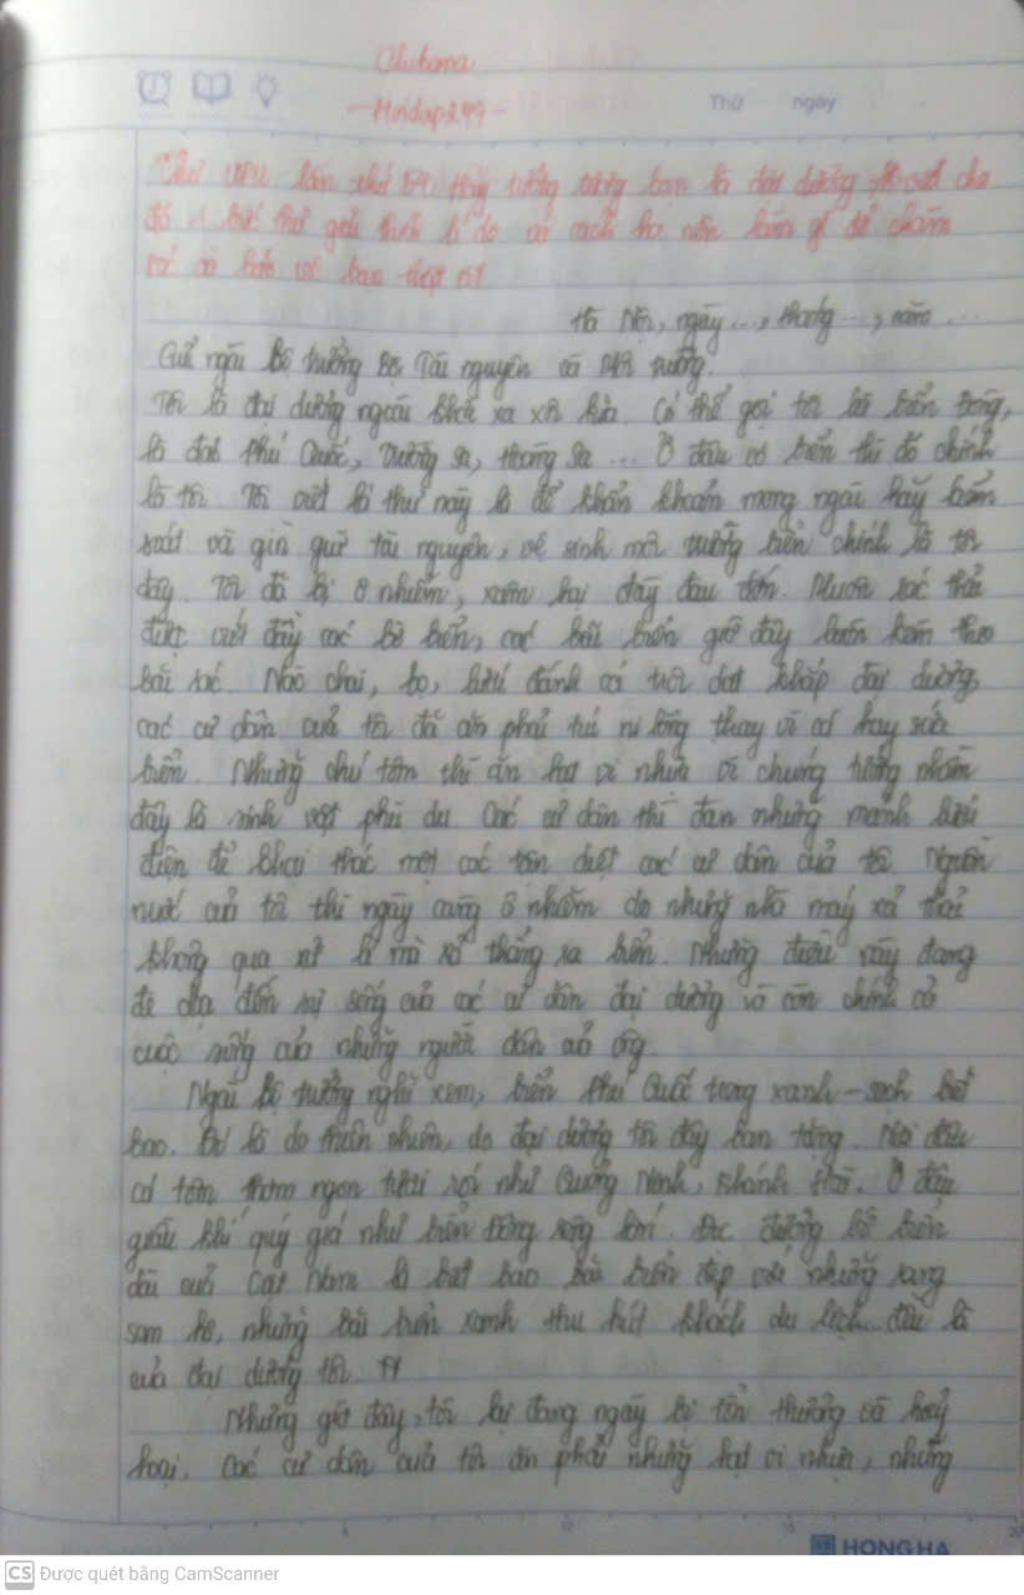 Thứ ngày
Thư UPU lần thứ 54: Hãy tưởng tượng bạn là đại dương, viết cho
đó 1 bức thư giải thích lí do và cách họ nên làm gì để chăm
và bạn
Hà Nội, ngày ..., tháng ..., năm ...
Gửi ngài Bộ trưởng Bộ Tài nguyên và Môi trường.
Tôi là đại dương ngoài khơi xa xôi kia. Có thể gọi tôi là biển Đông,
là đảo Phú Quốc, Trường Sa, Hoàng Sa ... Ở đâu có biển thì đó chính
là tôi. Tôi viết lá thư này là để khẩn khoản mong ngài hãy kiểm
soát và gìn giữ tài nguyên, vệ sinh môi trường biển chính là tôi
đây. Tôi đã bị ô nhiễm, xâm hại đầy đau đớn. Muôn rác thải
được vứt đầy các bờ biển, các bãi biển giờ đây kèm theo
bãi rác. Nào chai, lọ, lưới đánh cá trôi dạt khắp đại dương,
các cư dân của tôi đã ăn phải túi ni lông thay vì cá hay sứa
biển. Những chú tôm thì ăn hạt vi nhựa vì chúng tưởng nhầm
đây là sinh vật phù du. Các cư dân thì đan những mảnh lưới
điện để khai thác một các tận diệt các cư dân của tôi. Nguồn
nước của tôi thì ngày càng ô nhiễm do những nhà máy xả thải
không qua xử lí mà xả thẳng ra biển. Những điều này đang
đe dọa đến sự sống của các cư dân đại dương và còn chính cả
cuộc sống của những người dân của ông.
Ngài Bộ trưởng nghĩ xem, biển Phú Quốc trong xanh – sạch biết
bao. Đó là do thiên nhiên, do đại dương tôi đây ban tặng. Nơi đâu
có tôm thơm ngon tươi rói như Quảng Ninh, Khánh Hòa. Ở đâu
giàu khí quý giá như biển Đông rộng lớn. Dọc đường bờ biển
dài của Việt Nam là biết bao bãi biển đẹp với những rạng
san hô, những bãi biển xanh thu hút khách du lịch... đều là
của đại dương tôi.
Nhưng giờ đây, tôi lại đang ngày bị tổn thương và hủy
hoại. Các cư dân của tôi ăn phải những hạt vi nhựa, những
HONG HA
CS Được quét bằng CamScanner